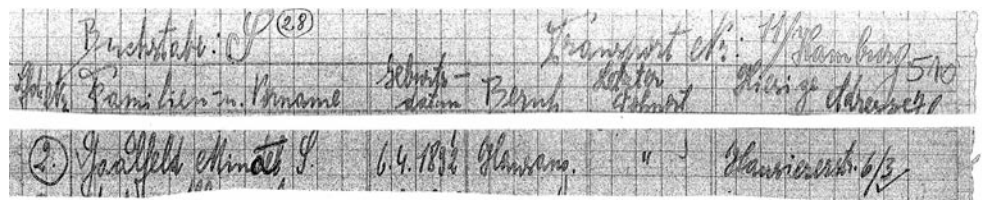 Buchstabe: S (28) Transport Nr: 11/Hamburg 510
Familien- u. Vorname Geburts-datum Beruf Letzter Wohnort Hiesige Adresse
2. Saalfeld Mindel S. 6.4.1892 Hausang. " Hanseierstr. 6/3